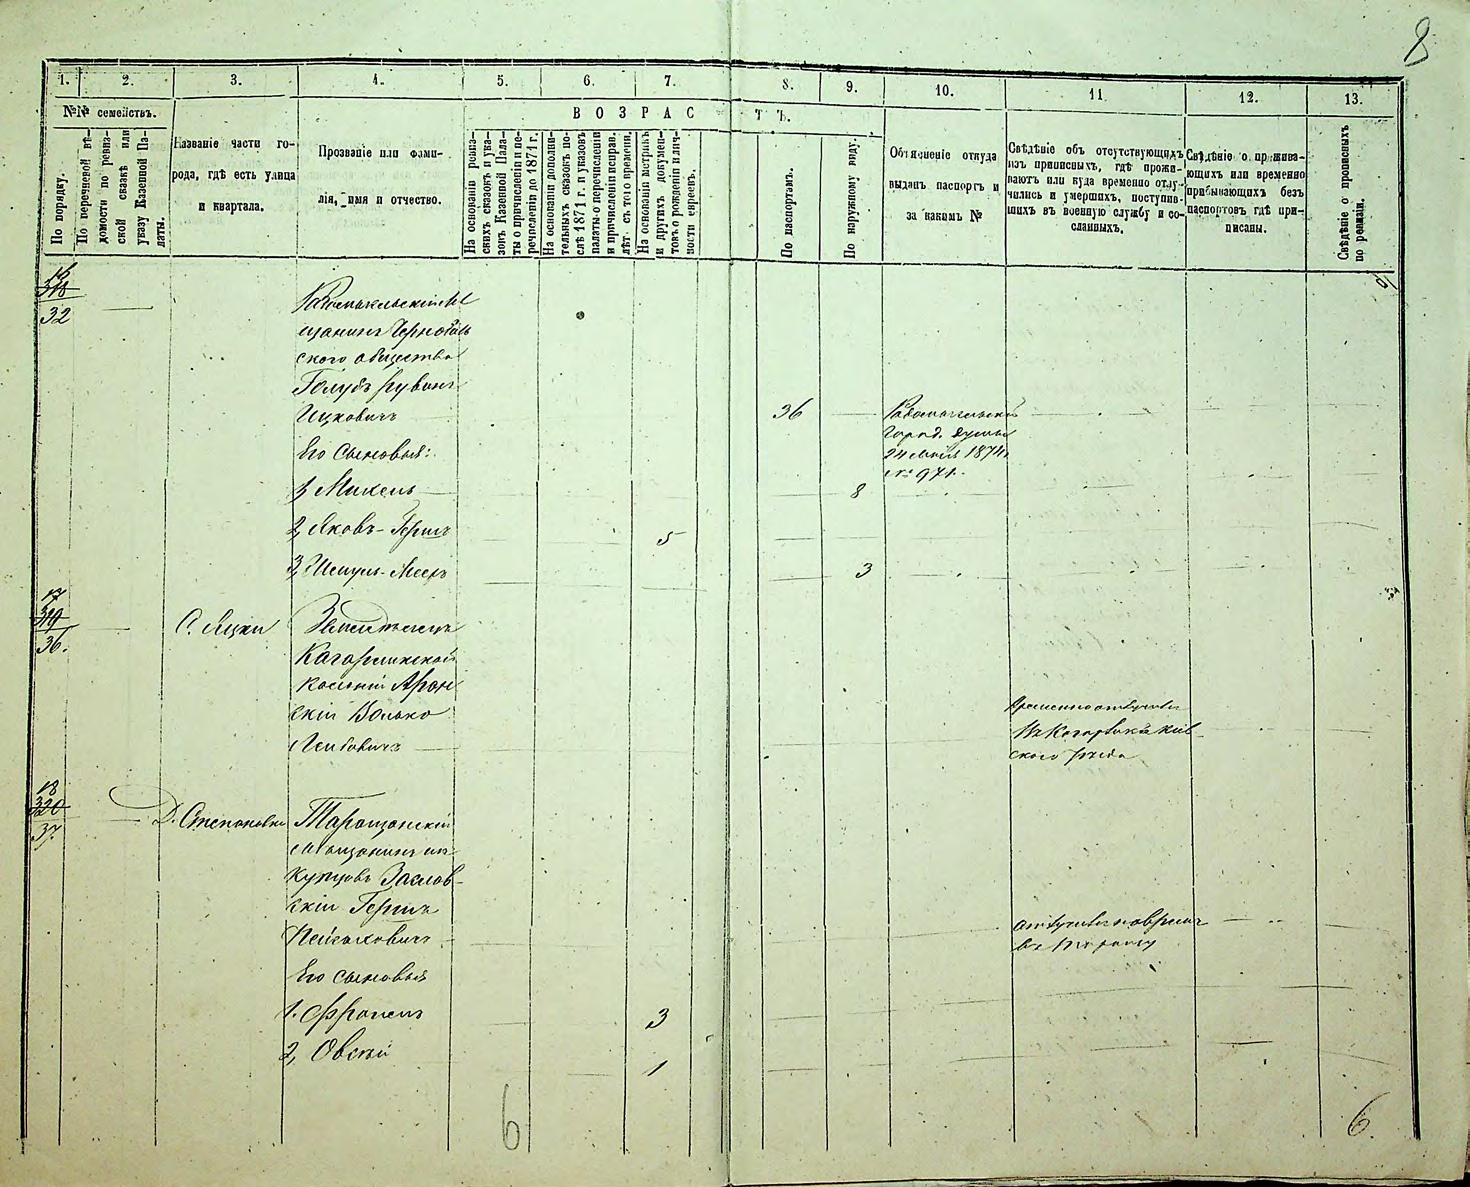 8
1. 2. 3. 4. 5. 6. 7. 8. 9. 10. 11 12. 13.
№№ семействъ.
В О З Р А С Т Ъ.
По порядку.
По перечневой вѣ-
домости по ревиз-
ской сказкѣ или
указу Казенной Па-
латы.
Названіе части го-
рода, гдѣ есть улица
и квартала.
Прозваніе или фами-
лія, имя и отчество.
На основаніи ревиз-
скихъ сказокъ и ука-
зовъ Казенной Пала-
ты о причисленіи и пе-
речисленіи до 1871 г.
На основаніи дополни-
тельныхъ сказокъ по-
слѣ 1871 г. и указовъ
палаты о перечисленіи
и причисленіи исправ.
лѣт съ того времени.
На основаніи метрикъ
и другихъ докумен-
товъ о рожденіи и лич-
ности евреевъ.
По паспортамъ.
По наружному виду.
Объясненіе откуда
выданъ паспортъ и
за какимъ №
Свѣдѣніе объ отсутствующихъ
изъ приписныхъ, гдѣ прожи-
ваютъ или куда временно отлу-
чились и умершихъ, поступив-
шихъ въ военную службу и со-
сланныхъ.
Свѣдѣніе о прожива-
ющихъ или временно
прибывающихъ безъ
паспортовъ гдѣ при-
писаны.
Свѣдѣніе о прописныхъ
по ревизіи.
16
318
32
Радомысльскій Мѣ
щанинъ Чернобыль
ского общества
Голубъ Рувинъ
Ицковичъ
36
Радомысльской
Город. Думы
24 Мая 1874
№ 971.
Его сыновья:
1, Михель
8
2, Яковъ-Гершъ
5
3, Шмуль-Мееръ
3
17
319
36.
С. Яцки
Земледѣлецъ
Кагарликской
колоніи Арон
скій Волько
Лейбовичъ
Временно отлучился
въ Кагарликъ Кіев
ского уѣзда
18
320
37.
Д. Степановка
Таращанскій
мѣщанинъ изъ
купцовъ Заслав-
скій Гершъ
Пейсаховичъ
отлучился на время
въ Таращу
Его сыновья
1. Фроимъ
3
2, Овсѣй
1
6
6.